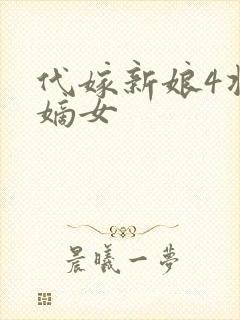 代嫁新娘4
嫡女
晨曦一夢